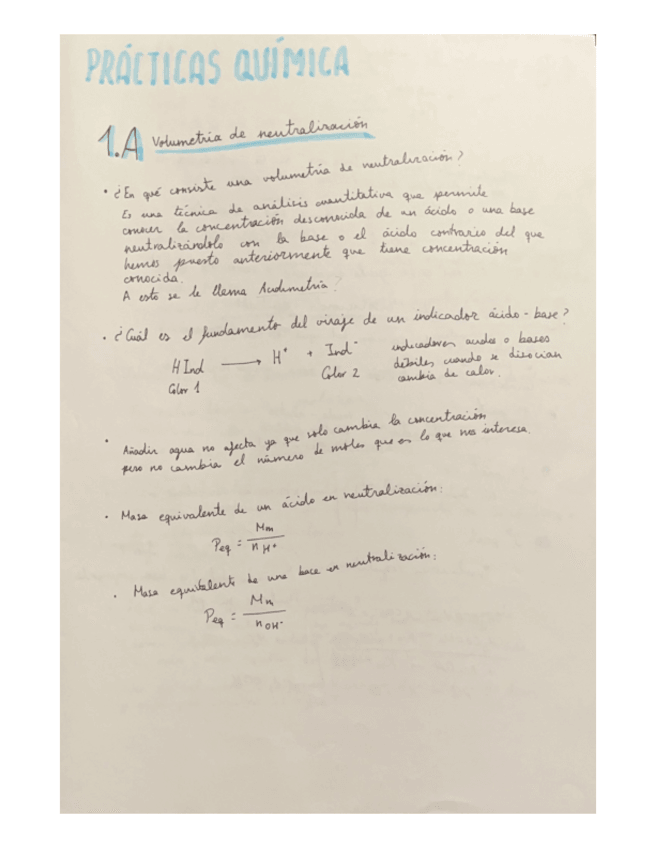 PRÁCTICAS QUÍMICA
1.A Volumetria de neutralización
• ¿En qué consiste una volumetría de neutralización?
Es una técnica de análisis cuantitativa que permite
conocer la concentración desconocida de un ácido o una base
neutralizándolo con la base o el ácido contrareo del que
hemos puesto anteriormente que tiene concentración
conocida.
A esto se le llama Acidimetría?
• ¿Cuál es el fundamento del viraje de un indicador ácido-base?
HInd → H⁺ + Ind⁻
Color 1 Color 2
indicadores acidos o bases
débiles, cuando se disocian
cambia de color.
• Añadir agua no afecta ya que solo cambia la concentración
pero no cambia el número de moles que es lo que nos interesa.
• Masa equivalente de un ácido en neutralización:
Peq = Mm / n H⁺
• Masa equivalente de una base en neutralización:
Peq = Mm / n OH⁻